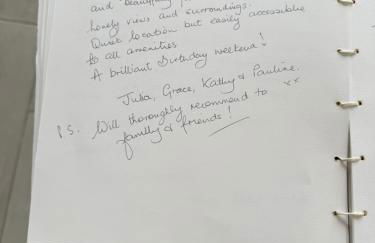 and beautiful
lovely views and surroundings.
Quiet location but easily accessible
to all amenities.
A brilliant Birthday weekend!
Julia, Grace, Kathy & Pauline.
xx
P.S. Will thoroughly recommend to
family & friends!